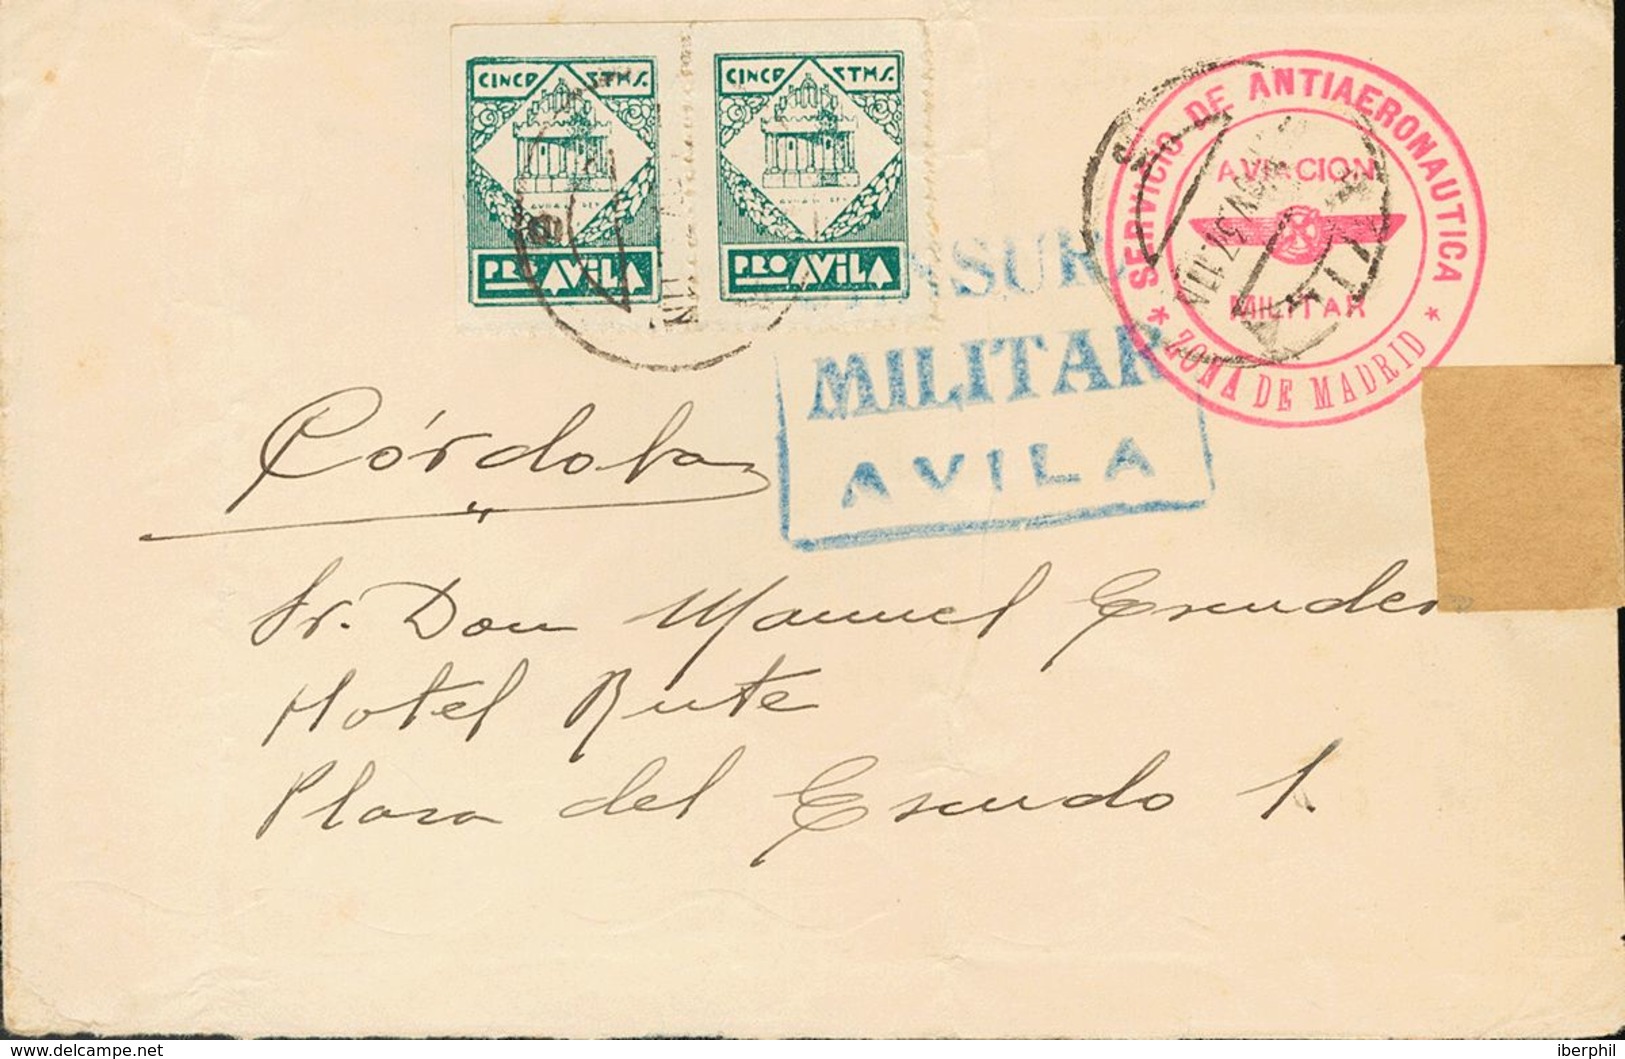 CINCO STMS.
PRO AVILA
CINCO STMS.
PRO AVILA
SERVICIO DE ANTIAERONAUTICA
AVIACION
MILITAR
* ZONA DE MADRID *
MILITAR
AVILA
Córdoba
Sr. Don Manuel Escudero
Hotel Rute
Plaza del Escudo 1.
www.delcampe.net
iberphil